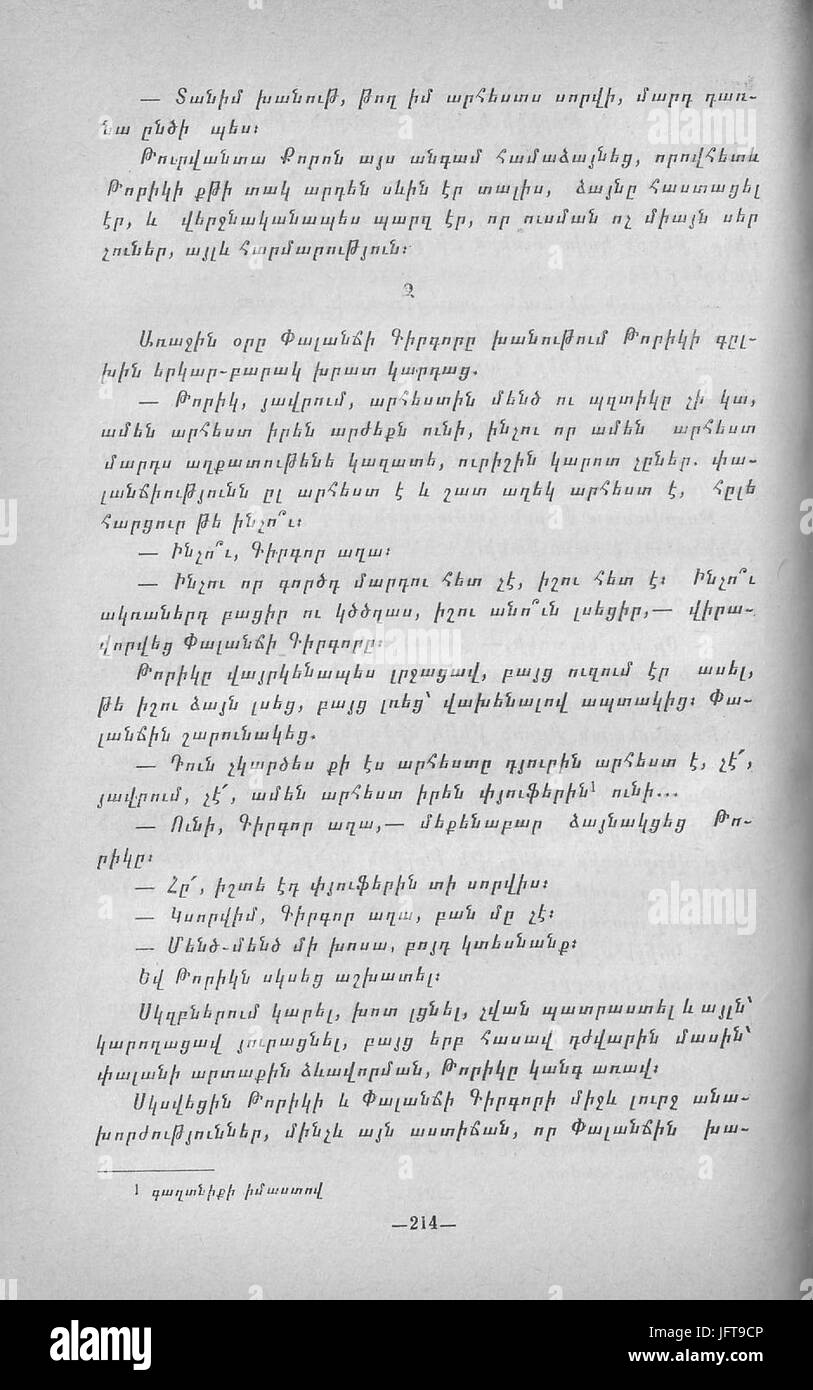 — Տանիմ խանութ, թող իմ արհեստս սորվի, մարդ դառ-
նա ընծի պես։
Թուրվանտա Քորոն այս անգամ համաձայնեց, որովհետև
Թորիկի քթի տակ արդեն սևին էր տալիս, ձայնը հաստացել
էր, և վերջնականապես պարզ էր, որ ուսման ոչ միայն սեր
չուներ, այլև հարմարություն։
2
Առաջին օրը Փալանճի Գիրգորը խանութում Թորիկի գըլ-
խին երկար-բարակ խրատ կարդաց.
— Թորիկ, յավրում, արհեստին մենծ ու պզտիկը չի կա,
ամեն արհեստ իրեն արժեքն ունի, ինչու որ ամեն արհեստ
մարդս աղքատութենե կազատե, ուրիշին կարոտ չըներ. փա-
լանճիությունն ըլ արհեստ է և շատ աղեկ արհեստ է, հըլե
հարցուր թե ինչո՞ւ։
— Ինչո՞ւ, Գիրգոր աղա։
— Ինչու որ գործդ մարդու հետ չէ, իշու հետ է։ Ինչո՞ւ
ակռաներդ բացիր ու կծծղաս, իշու անո՞ւն լսեցիր,— վիրա-
վորվեց Փալանճի Գիրգորը։
Թորիկը վայրկենապես լրջացավ, բայց ուզում էր ասել,
թե իշու ձայն լսեց, բայց լռեց՝ վախենալով ապտակից։ Փա-
լանճին շարունակեց.
— Դուն չկարծես քի էս արհեստը դյուրին արհեստ է, չէ՛,
յավրում, չէ՛, ամեն արհեստ իրեն փյուֆերին¹ ունի...
— Ունի, Գիրգոր աղա,— մեքենաբար ձայնակցեց Թո-
րիկը։
— Հը՛, իշտե էդ փյուֆերին տի սորվիս։
— Կսորվիմ, Գիրգոր աղա, բան մը չէ։
— Մենծ-մենծ մի խոսա, բոյդ կտեսնանք։
Եվ Թորիկն սկսեց աշխատել։
Սկզբներում կարել, խոտ լցնել, չվան պատրաստել և այլն՝
կարողացավ յուրացնել, բայց երբ հասավ դժվարին մասին՝
փալանի արտաքին ձևավորման, Թորիկը կանգ առավ։
Սկսվեցին Թորիկի և Փալանճի Գիրգորի միջև լուրջ անա-
խորժություններ, մինչև այն աստիճան, որ Փալանճին խա-
1 գաղտնիքի իմաստով
—214—
alamy
Image ID: JFT9CP
www.alamy.com